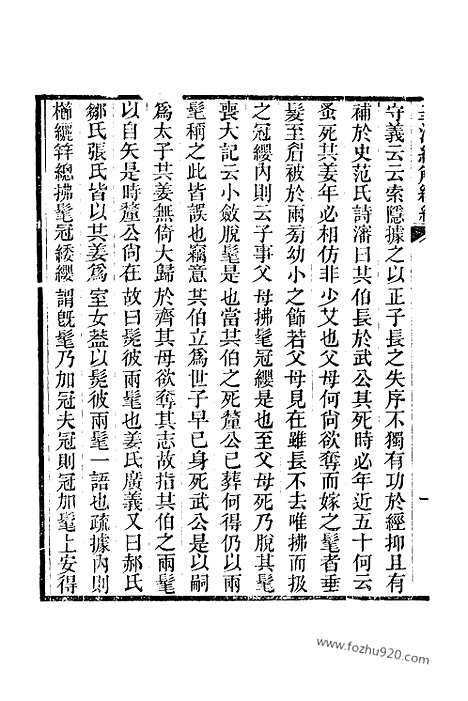 守義云云索隱據之以正子長之失序不獨有功於經抑且有
補於史范氏詩瀋曰共伯長於武公其死時必年近五十何云
蚤死共姜年必相仿非少艾也父母何尙欲奪而嫁之髦者垂
髮至眉被於兩旁幼小之飾若父母見在雖長不去唯拂而扱
之冠纓內則云子事父母拂髦冠纓是也至父母死乃脫其髦
喪大記云小斂脫髦是也當共伯之死釐公已葬何得仍以兩
髦稱之此皆誤也竊意共伯立爲世子早已身死武公是以嗣
爲太子共姜無倚大歸於齊其母欲奪其志故指共伯之兩髦
以自矢是時釐公尙在故曰髧彼兩髦也姜氏廣義又曰郝氏
鄒氏張氏皆以共姜爲室女葢以髧彼兩髦一語也疏據內則
櫛纚笄總拂髦冠緌纓謂旣髦乃加冠夫冠則冠加髦上安得
一
www.fozhu920.com